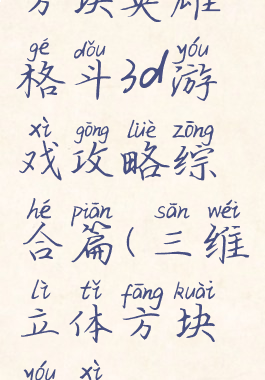 方块英雄
gé dǒu yóu
格斗3d游
xì gōng lüè zōng
戏攻略综
hé piān sān wéi
合篇(三维
lì tǐ fāng kuài
立体方块
yóu xì